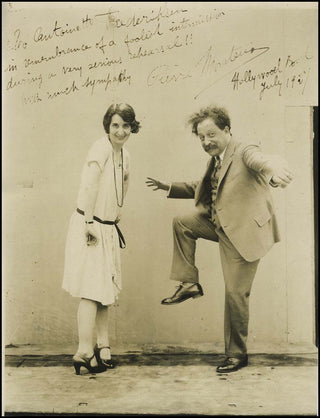 To Antoinette Frederiksen
in remembrance of a foolish intermission
during a very serious rehearsal!!
with much sympathy
Pierre Monteux
Hollywood Bowl
July 192